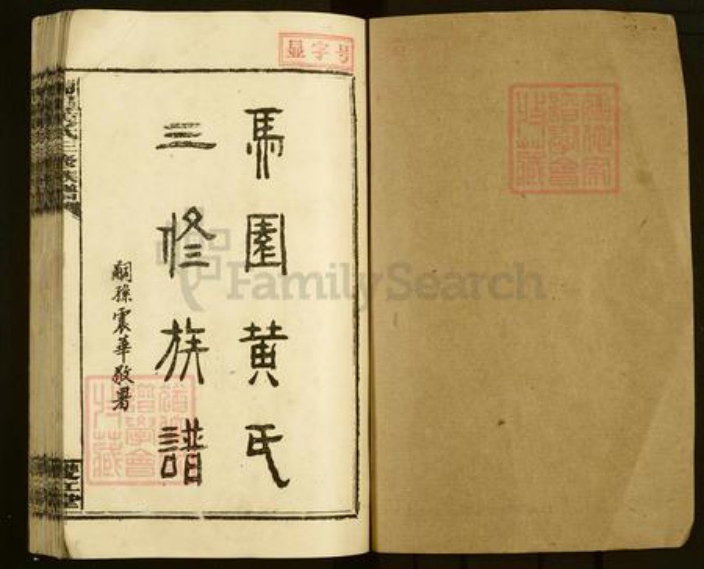 显字号
馬園黄氏
三修族譜
嗣孫震華敬署
FamilySearch